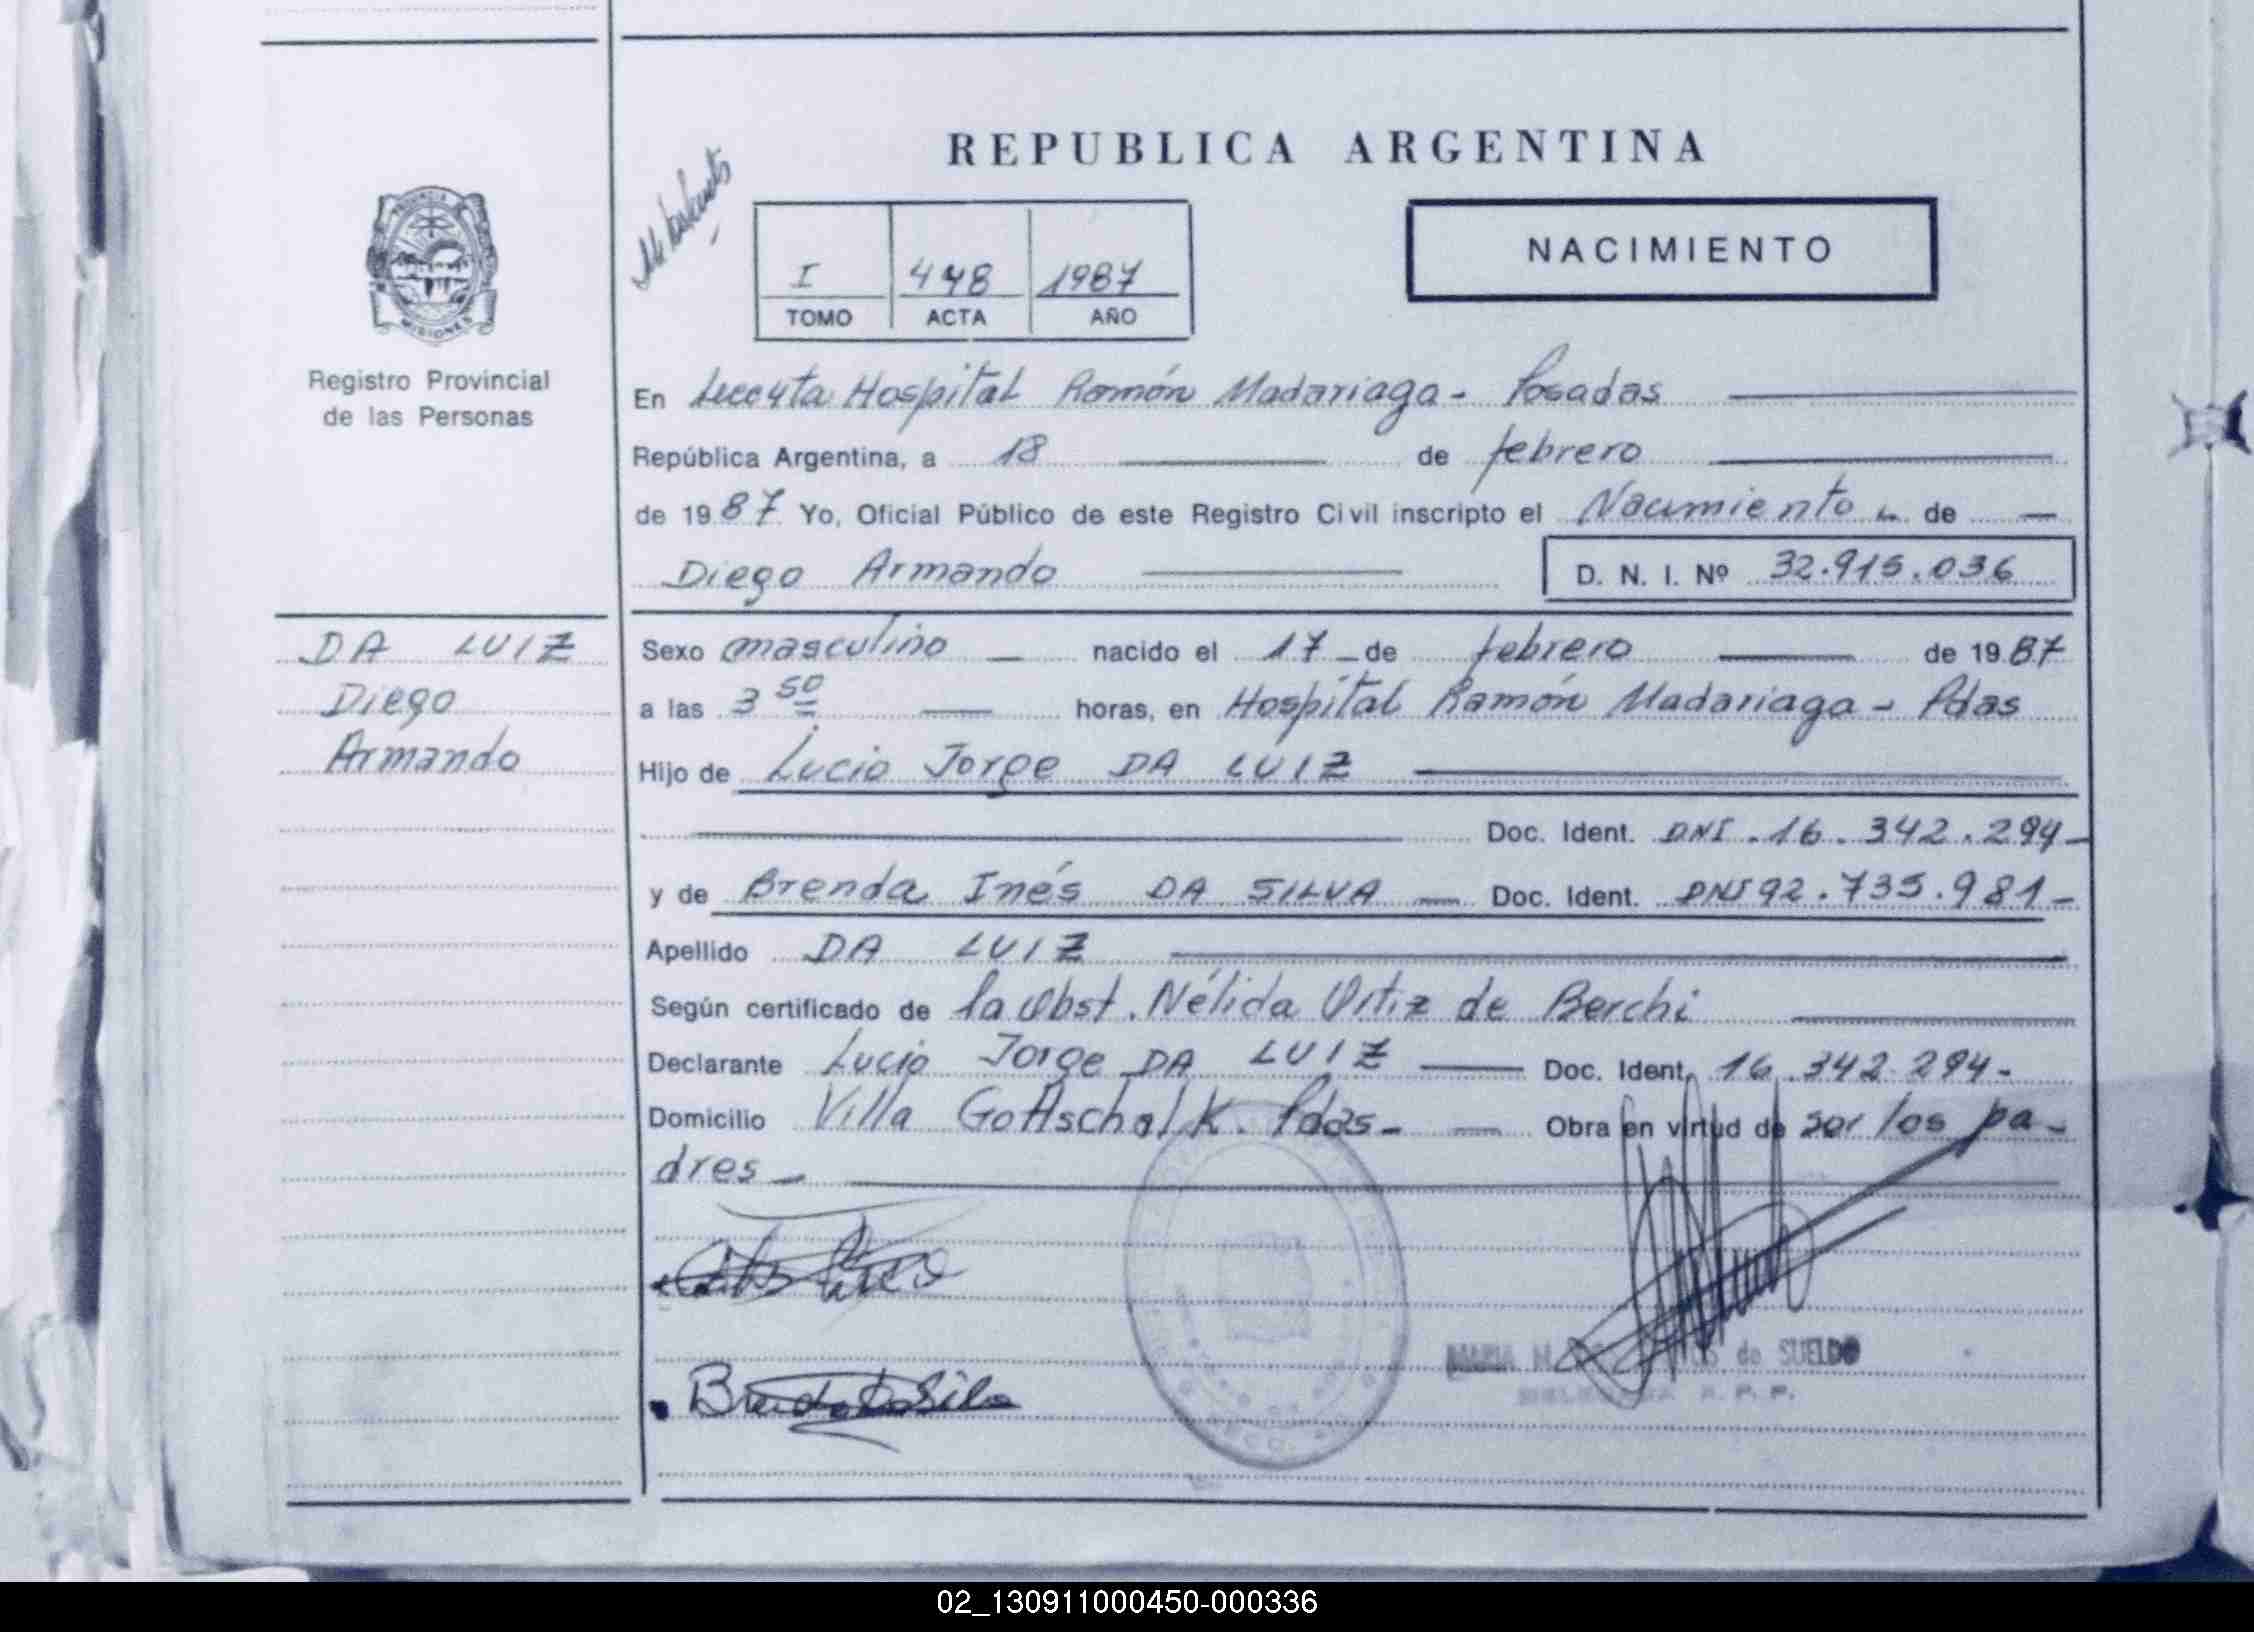 REPUBLICA ARGENTINA
NACIMIENTO
I 448 1987
TOMO ACTA AÑO
PROVINCIA DE
MISIONES
Registro Provincial
de las Personas
En Hospital Ramón Madariaga - Posadas
República Argentina, a 18 de febrero
de 1987 Yo, Oficial Público de este Registro Civil inscripto el Nacimiento de
Diego Armando D. N. I. Nº 32.915.036
DA LUIZ
Diego
Armando
Sexo masculino nacido el 17 de febrero de 1987
a las 3 50 horas, en Hospital Ramón Madariaga - Pdas
Hijo de Lucio Jorge DA LUIZ
Doc. Ident. DNI. 16.342.294-
y de Brenda Inés DA SILVA Doc. Ident. DNI 92.735.981-
Apellido DA LUIZ
Según certificado de la Obst. Nélida Ortiz de Berchi
Declarante Lucio Jorge DA LUIZ Doc. Ident. 16.342.294-
Domicilio Villa Gottschalk. Pdas- Obra en virtud de ser los pa-
dres-
Brenda Da Silva
MARIA de SUELDO
R. P. P.
02_130911000450-000336